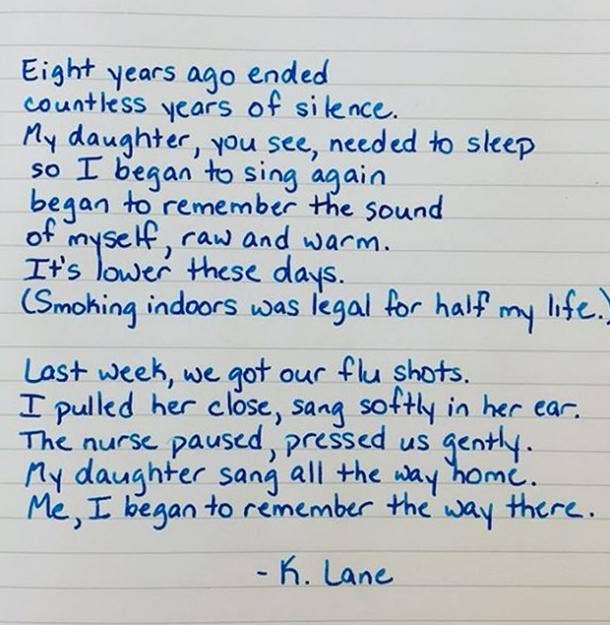 Eight years ago ended
countless years of silence.
My daughter, you see, needed to sleep
so I began to sing again
began to remember the sound
of myself, raw and warm.
It's lower these days.
(Smoking indoors was legal for half my life.)
Last week, we got our flu shots.
I pulled her close, sang softly in her ear.
The nurse paused, pressed us gently.
My daughter sang all the way home.
Me, I began to remember the way there.
- K. Lane